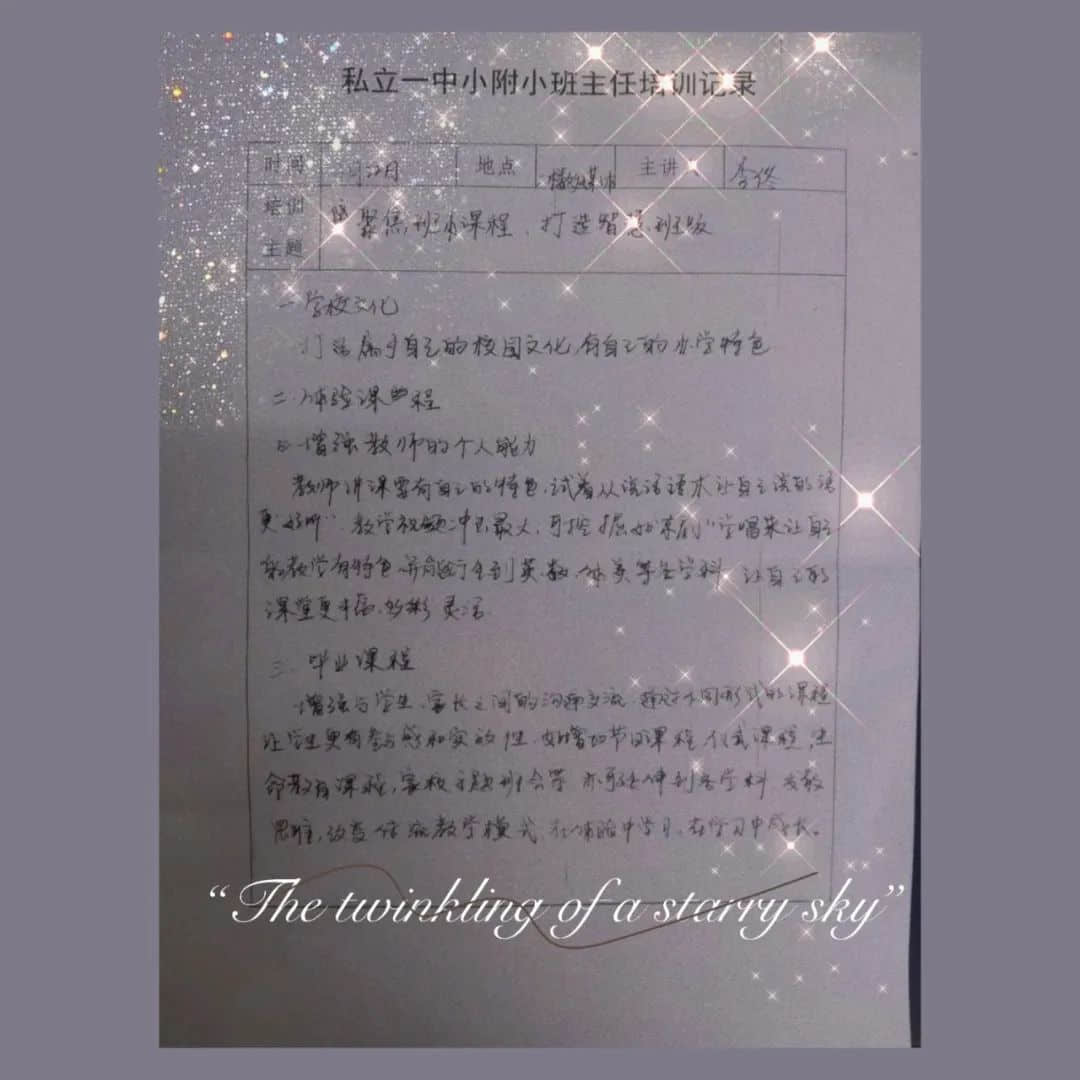 私立一中小附小班主任培训记录
时间 地点 主讲 李佟
培训 聚焦班本课程,打造智慧班级
主题
一 学校文化
打造属于自己的校园文化,有自己的办学特色
二.体验课程
增强教师的个人能力
教师讲课要有自己的特色,试着从说话语术让自己说的话
更"好听".教学视频 "学唱来让自己
的教学有特色 英,数,体美等 学科 让自己的
课堂更丰富,多彩 灵活
三.毕业课程
增强与学生,家长之间的沟通交流.通过不同形式的课程
让学生更有参与感和实效性.如增加节日课程,仪式课程,生
命教育课程,家校主题班会等 亦可延伸到各学科 发散
思维,改变传统教学模式 在体验中学习,在学习中成长。
"The twinkling of a starry sky"